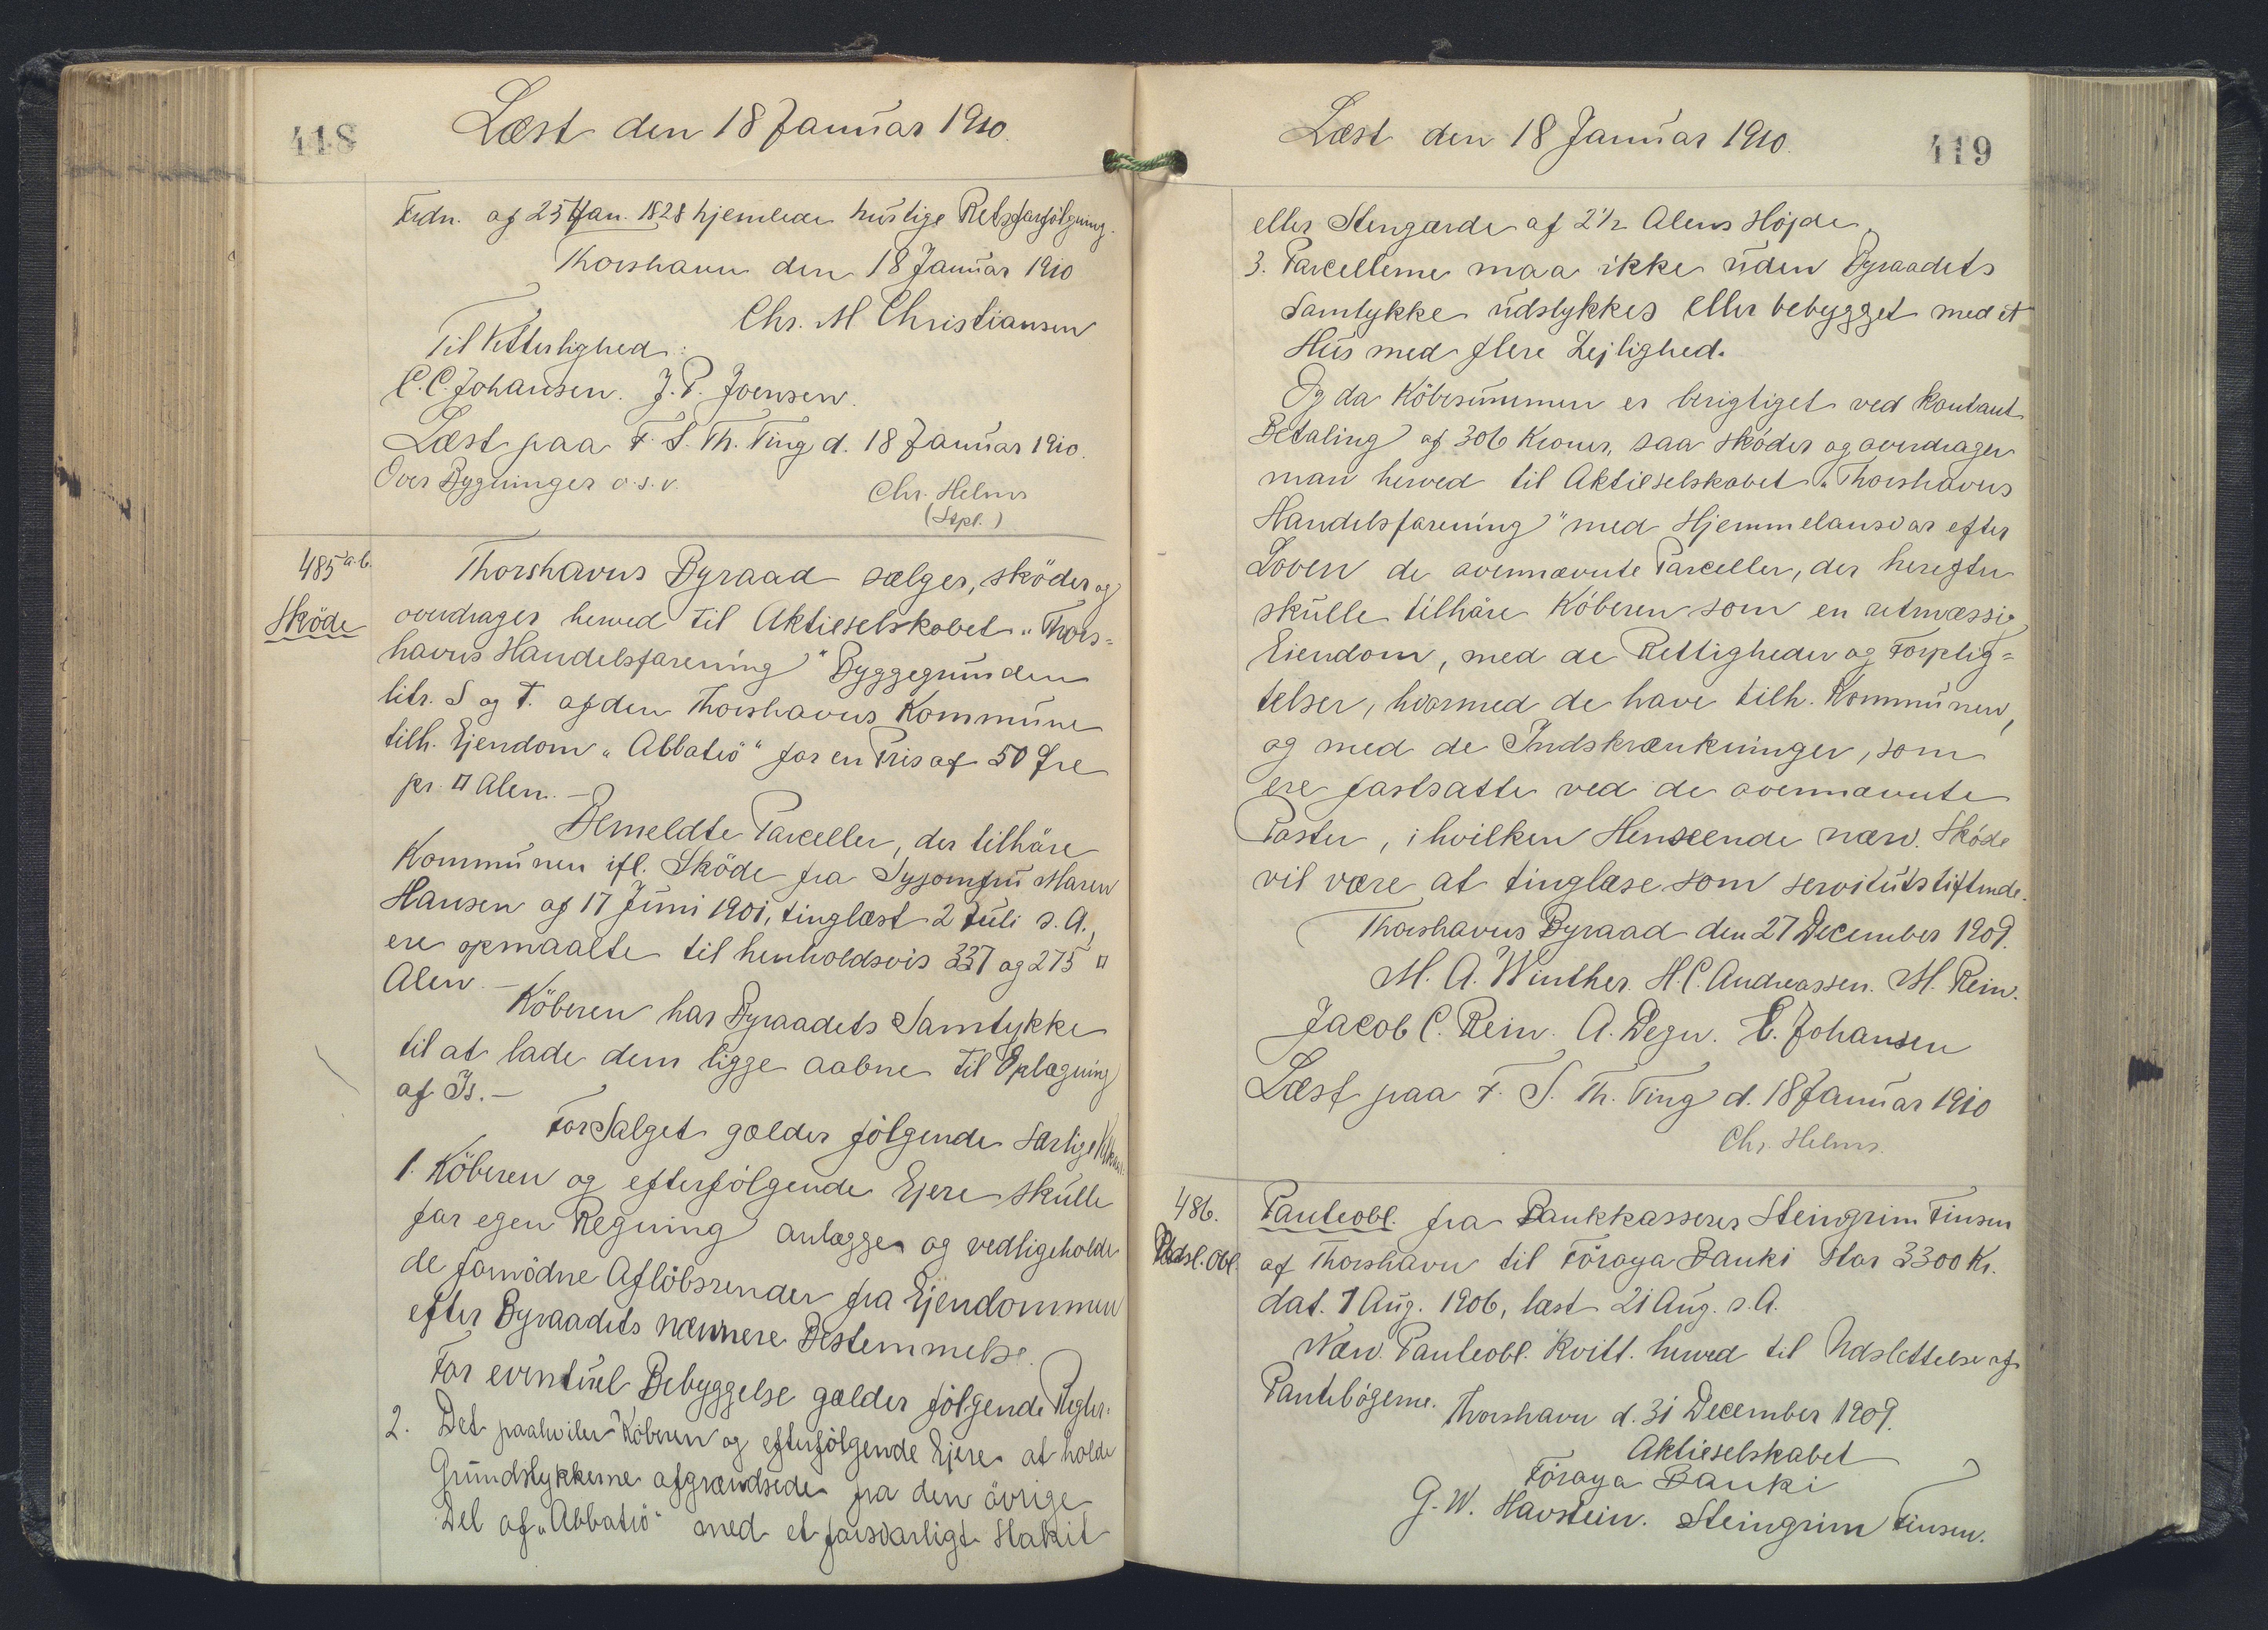 418
Læst den 18 Januar 1910.
Frdn. af 25 Jan. 1828 hjemlede hurtige Retsforfölgning.
Thorshavn den 18 Januar 1910
Chr. M Christiansen
Til Vitterlighed:
C. C. Johansen. J. P. Joensen.
Læst paa F. S. Th. Ting d. 18 Januar 1910.
Over Bygninger o.s.v.
Chr. Helms
(Stpl.)
485 a.b.
Sköde
Thorshavns Byraad sælger, sköder og
overdrager herved til Aktieselskabet "Thors=
havns Handelsforening" Byggegrunden
litr. S og T. af den Thorshavns Kommune
tilh. Ejendom "Abbatiö" for en Pris af 50 Øre
pr. □ Alen.—
Bemeldte Parceller, der tilhöre
Kommunen ifl. Sköde fra Syjomfru Maren
Hansen af 17 Juni 1901, tinglæst 2 Juli s. A.,
ere opmaalte til henholdsvis 337 og 275 □
Alen.—
Köberen har Byraadets Samtykke
til at lade dem ligge aabne til Oplægning
af Is.—
For Salget gælder fölgende særlige
1. Köberen og efterfölgende Ejere skulle
for egen Regning anlægge og vedligeholde
de fornödne Aflöbsrender fra Ejendommen
efter Byraadets nærmere Bestemmelse.
For eventuel Bebyggelse gælder fölgende Regler:
2. Det paahviler Köberen og efterfölgende Ejere at holde
Grundstykkerne afgrændsede fra den övrige
Del af "Abbatiö" med et forsvarligt Stakit
Læst den 18 Januar 1910.
419
eller Stengærde af 2 1/2 Alens Höjde.
3. Parcellerne maa ikke uden Byraadets
Samtykke udstykkes eller bebygget med et
Hus med flere Lejlighed.
Og da Köbesummen er berigtiget ved kontant
Betaling af 306 Kroner, saa sköder og overdrager
man herved til Aktieselskabet "Thorshavns
Handelsforening" med Hjemmelansvar efter
Loven de ovennævnte Parceller, der herefter
skulle tilhöre Köberen som en retmæssig
Eiendom, med de Rettigheder og Forplig=
telser, hvormed de have tilh. Kommunen,
og med de Indskrænkninger, som
ere fastsatte ved de ovennævnte
Poster, i hvilken Henseende nærv. Sköde
vil være at tinglæse som servitutstiftende.
Thorshavns Byraad den 27 December 1909.
M. A. Winther. H. C. Andreassen. M. Rein.
Jacob C. Rein. A. Degn. E. Johansen
Læst paa F. S. Th. Ting d. 18 Januar 1910
Chr. Helms.
486.
Udsl. Obl.
Panteobl. fra Bankkasserer Steingrim Finsen
af Thorshavn til Föroya Banki stor 3300 Kr.
dat. 7 Aug. 1906, læst 21 Aug. s. A.
Nærv. Panteobl. kvitt. herved til Udslettelse af
Pantebögerne.
Thorshavn d. 31 December 1909.
Aktieselskabet
Föroya Banki
G. W. Havstein. Steingrim Finsen.